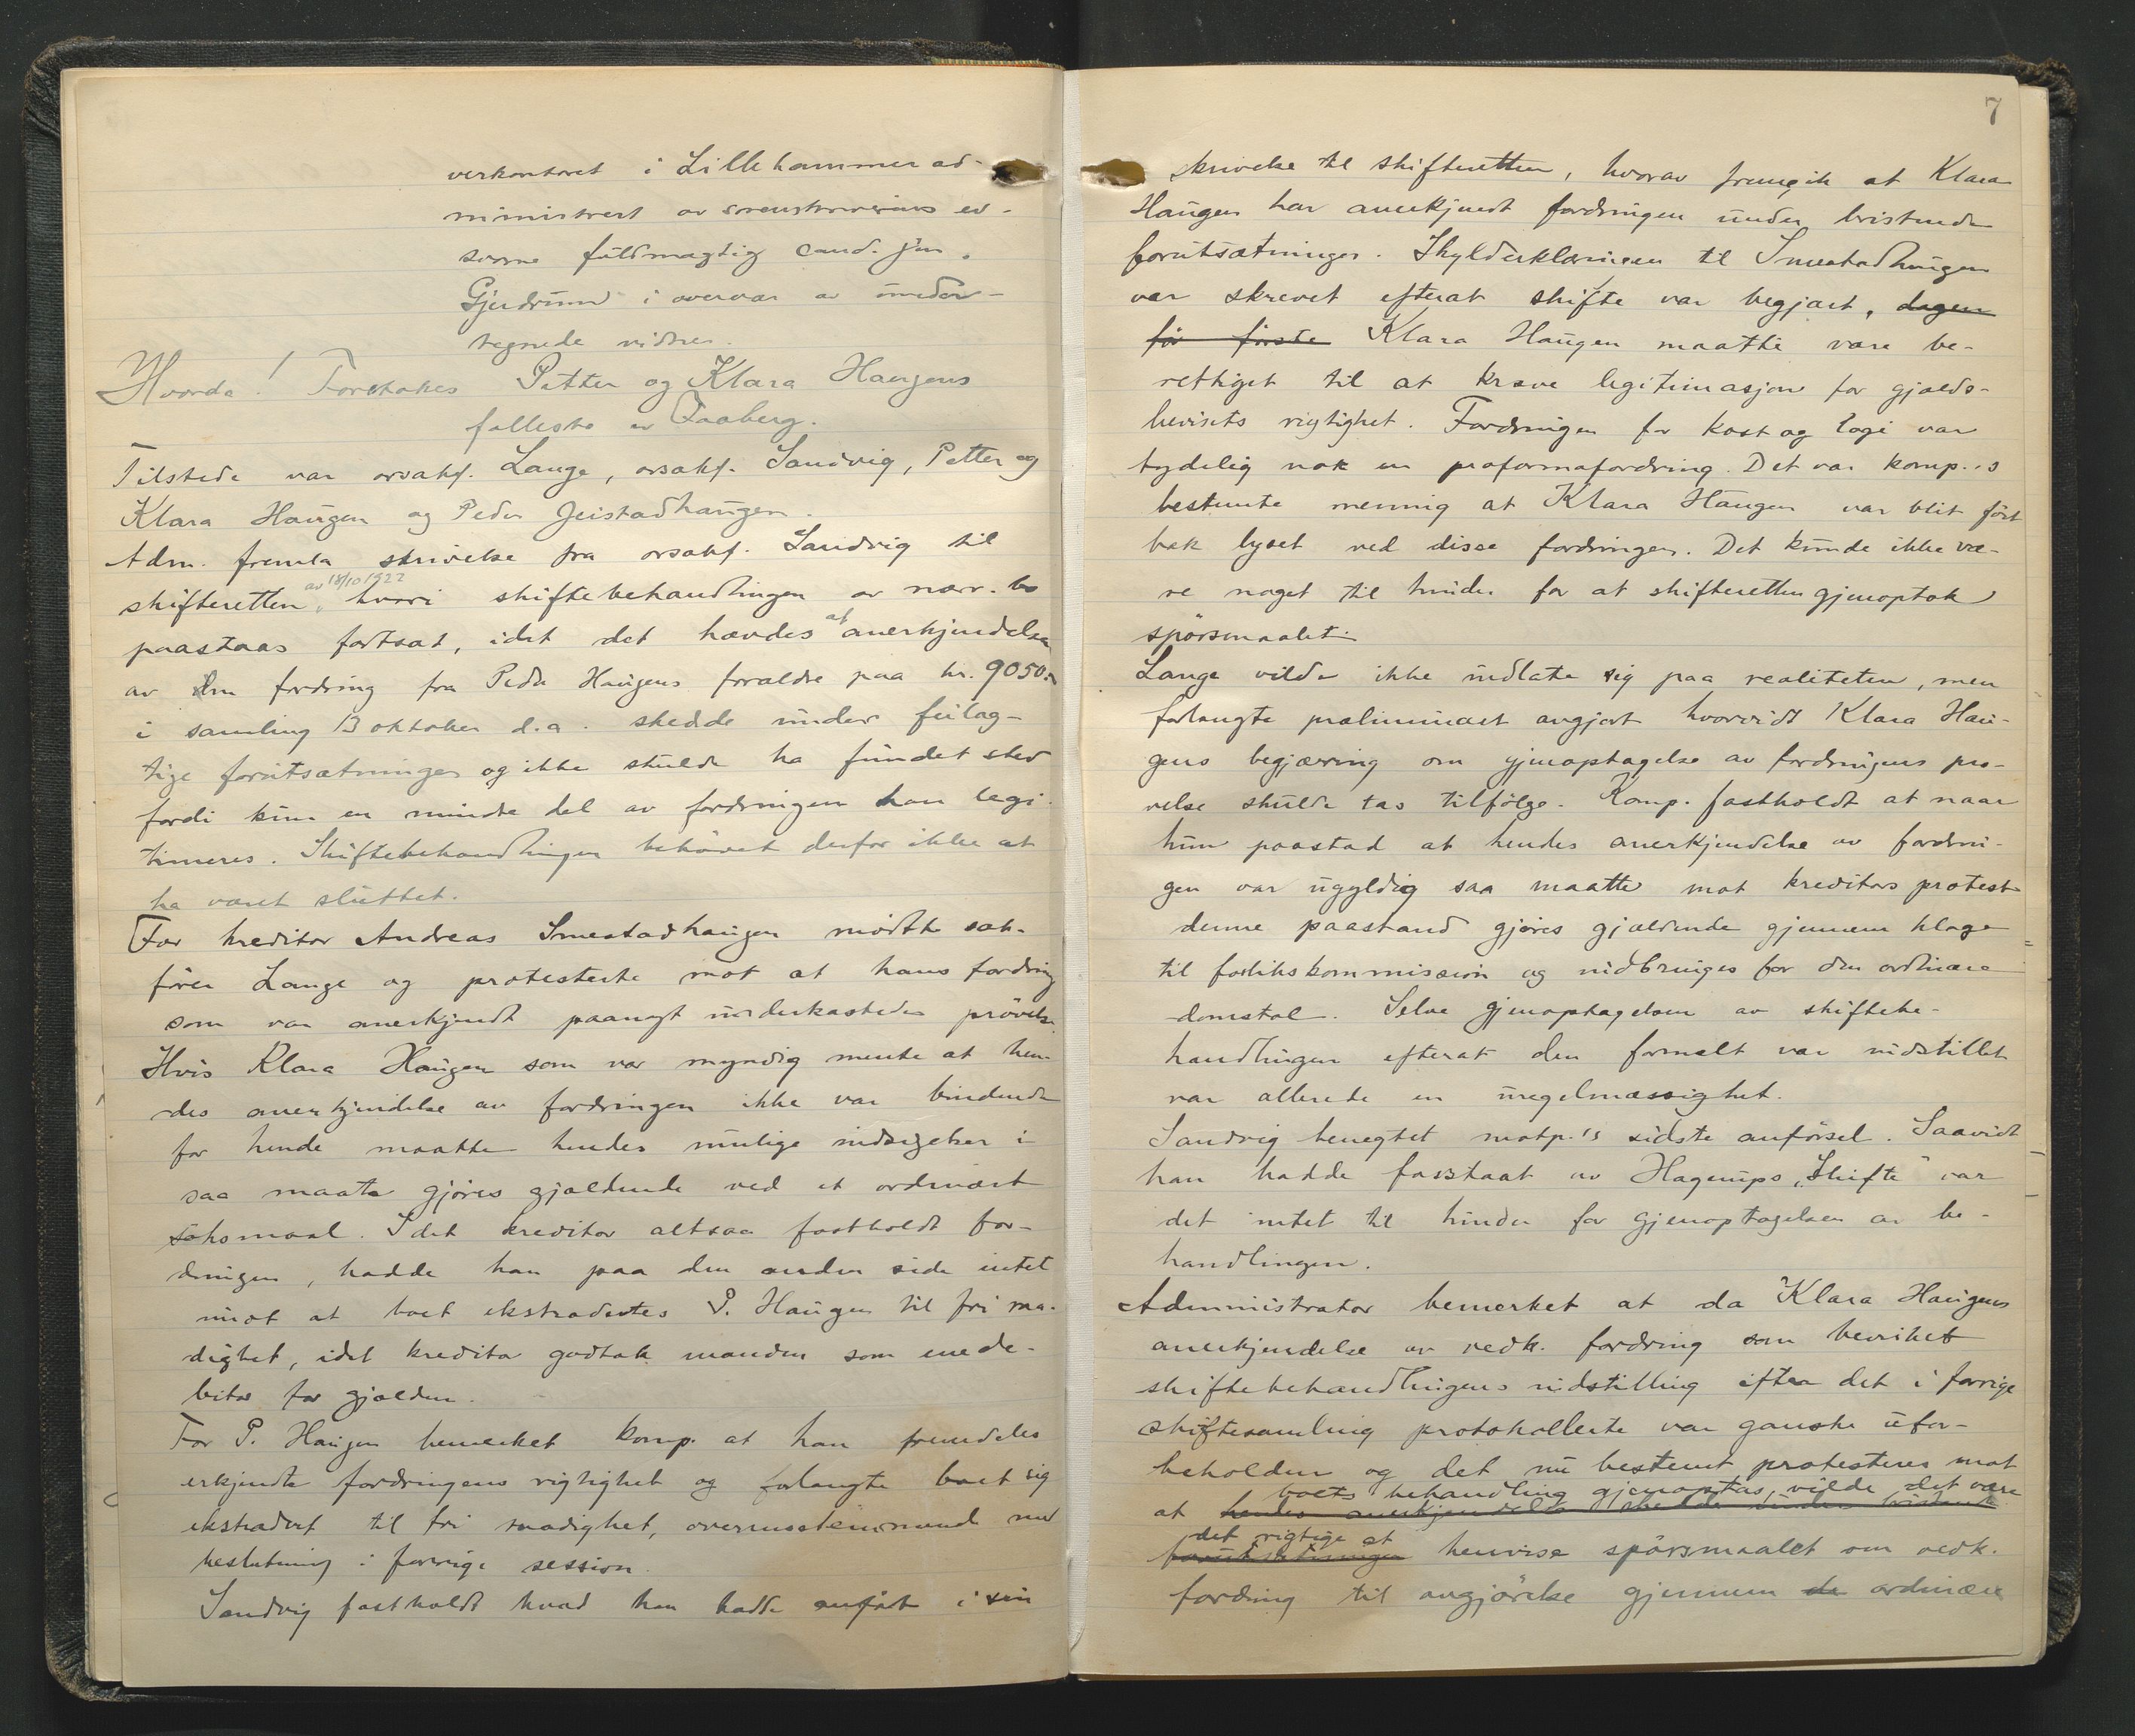 verkontoret i Lillehammer ad-
ministrert av sorenskriverens ed-
svorne fuldmægtig cand. jur.
Gjerdrum i overvær av under-
tegnede vidner.
Hvorda! Foretokes Petter og Klara Haugens
fællesbo av Faaberg.
Tilstede var orsakf. Lange, orsakf. Sandvig, Petter og
Klara Haugen og Peder Jeistadhaugen.
Adm. fremla skrivelse fra orsakf. Sandvig til
skifteretten av 18/10 1922 hvori skiftebehandlingen av nærv. bo
paastaas fortsat, idet det hævdes at anerkjendelsen
av den fordring fra Peder Haugens forældre paa kr. 9050.-
i samling 13 oktober d.a. skedde under feilag-
tige forutsætninger og ikke skulde ha fundet sted
fordi kun en mindre del av fordringen kan legi-
timeres. Skiftebehandlingen behøvet derfor ikke at
ha været sluttet.
For kreditor Andreas Smestadhaugen mødte sak-
fører Lange og protesterte mot at hans fordring
som var anerkjendt paanyt underkastedes prøvelse.
Hvis Klara Haugen som var myndig mente at hen-
des anerkjendelse av fordringen ikke var bindende
for hende maatte hendes mulige indsigelser i
saa maate gjøres gjældende ved et ordinært
søksmaal. Idet kreditor altsaa fastholdt for-
dringen, hadde han paa den anden side intet
imot at boet ekstradertes P. Haugen til fri raa-
dighet, idet kreditor godtok manden som enede-
bitor for gjælden.
For P. Haugen bemerket komp. at han fremdeles
erkjendte fordringens rigtighet og forlangte boet sig
ekstradert til fri raadighet, overensstemmende med
beslutning i forrige session.
Sandvig fastholdt hvad han hadde anført i sin
7
skrivelse til skifteretten, hvorav fremgik at Klara
Haugen har anerkjendt fordringen under bristende
forutsætninger. Skylderklæringen til Smestadhaugen
var skrevet efterat skifte var begjært, dagen
før første Klara Haugen maatte være be-
rettiget til at kræve legitimasjon for gjælds-
bevisets rigtighet. Fordringen for kost og logi var
tydelig nok en proformafordring. Det var komp.'s
bestemte mening at Klara Haugen var blit ført
bak lyset ved disse fordringer. Det kunde ikke væ-
re noget til hinder for at skifteretten gjenoptok
spørsmaalet.
Lange vilde ikke indlate sig paa realiteten, men
forlangte præliminært avgjort hvorvidt Klara Hau-
gens begjæring om gjenoptagelse av fordringens prø-
velse skulde tas tilfølge. Komp. fastholdt at naar
hun paastod at hendes anerkjendelse av fordrin-
gen var ugyldig saa maatte mot kreditors protest
denne paastand gjøres gjældende gjennem klage
til forlikskommission og indbringes for den ordinære
domstol. Selve gjenoptagelsen av skiftebe-
handlingen efterat den formelt var indstillet
var allerede en uregelmæssighet.
Sandvig benegtet motp.'s sidste anførsel. Saavidt
han hadde forstaat av Hagerups „Skifte" var
det intet til hinder for gjenoptagelsen av be-
handlingen.
Administrator bemerket at da Klara Haugens
anerkjendelse av vedk. fordring som bevirket
skiftebehandlingens indstilling efter det i forrige
skiftesamling protokollerte var ganske ufor-
beholden og det nu bestemt protesteres mot
boets behandling gjenoptas, vilde det være
at hendes anerkjendelse skedde under bristende
det rigtige at
forutsætninger henvise spørsmaalet om vedk.
fordring til avgjørelse gjennem de ordinære